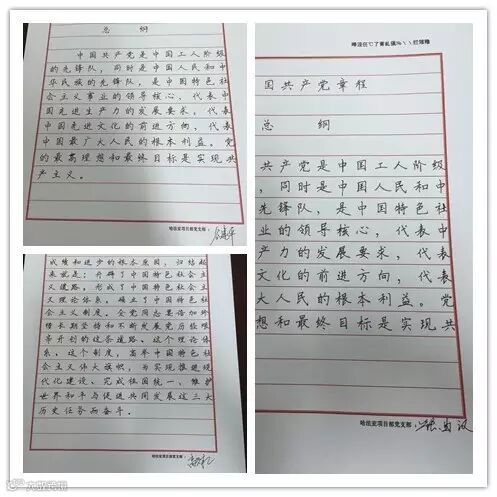 总 纲
中国共产党是中国工人阶级
的先锋队，同时是中国人民和中
华民族的先锋队，是中国特色社
会主义事业的领导核心，代表中
国先进生产力的发展要求，代表
中国先进文化的前进方向，代表
中国最广大人民的根本利益。党
的最高理想和最终目标是实现共
产主义。
哈法亚项目部党支部：
成绩和进步的根本原因，归结起
来就是：开辟了中国特色社会主
义道路，形成了中国特色社会主
义理论体系，确立了中国特色社
会主义制度。全党同志要倍加珍
惜长期坚持和不断发展党历经艰
辛开创的这条道路、这个理论体
系、这个制度，高举中国特色社
会主义伟大旗帜，为实现推进现
代化建设、完成祖国统一、维护
世界和平与促进共同发展这三大
历史任务而奋斗。
哈法亚项目部党支部：
国共产党章程
总 纲
共产党是中国工人阶级
，同时是中国人民和中
先锋队，是中国特色社
业的领导核心，代表中
产力的发展要求，代表
文化的前进方向，代表
大人民的根本利益。党
想和最终目标是实现共
哈法亚项目部党支部：